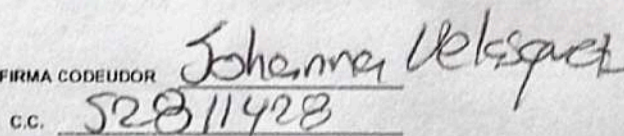 FIRMA CODEUDOR Johanna Velasquez
C.C. 52811428